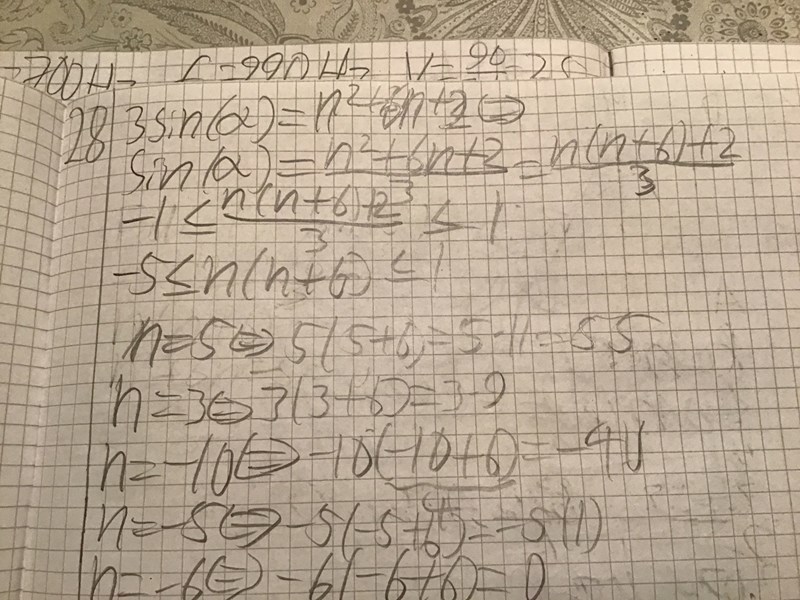 28 3sin(α)=n²+6n+2 ⇔
sin(α)= n²+6n+2 / 3 = n(n+6)+2 / 3
-1 ≤ n(n+6)+2 / 3 ≤ 1
-5≤n(n+6) ≤ 1
n=5⇔ 5(5+6)=5·11=55
n=3⇔3(3+6)=3·9
n=-10⇔ -10(-10+6)=-4
n=-5⇔ -5(-5+6)=-5(1)
n=-6⇔ -6(-6+6)=0